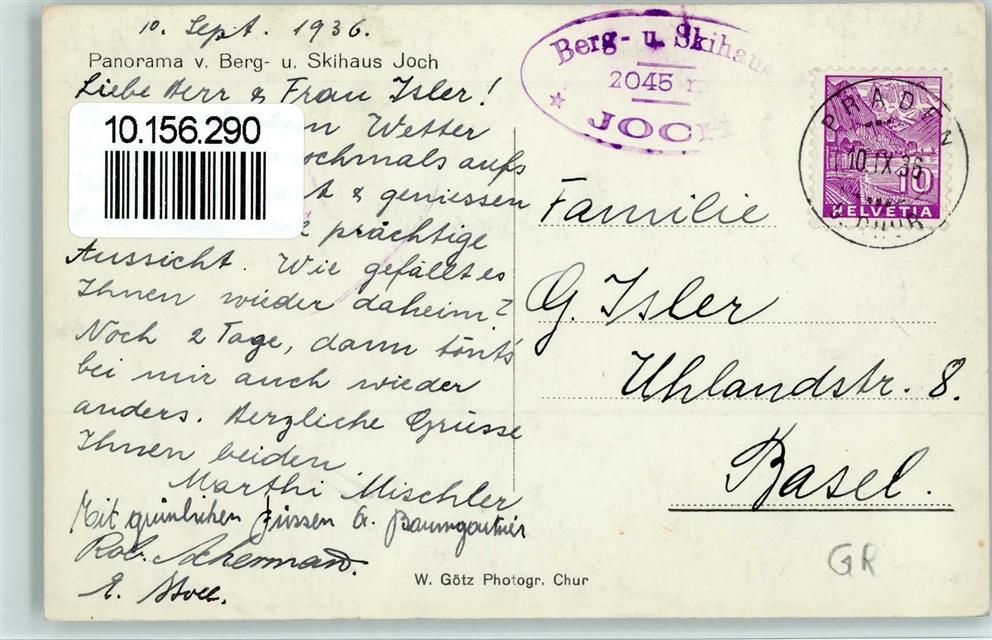 10. Sept. 1936.
Panorama v. Berg- u. Skihaus Joch
Liebe Herr & Frau Isler!
10.156.290
Wetter
ochmals aufs
t & geniessen
prächtige
Aussicht. Wie gefällt es
Ihnen wieder daheim?
Noch 2 Tage, dann tönt's
bei mir auch wieder
anders. Herzliche Grüsse
Ihnen beiden.
Marthi Mischler
Mit grünlichen Füssen G. Baumgartner
Rob. Ackermann.
E.
W. Götz Photogr. Chur
Berg- u. Skihaus
2045 m
JOCH
PRADEN
10.IX.36
10
HELVETIA
Familie
G. Isler
Uhlandstr. 8.
Basel.
GR